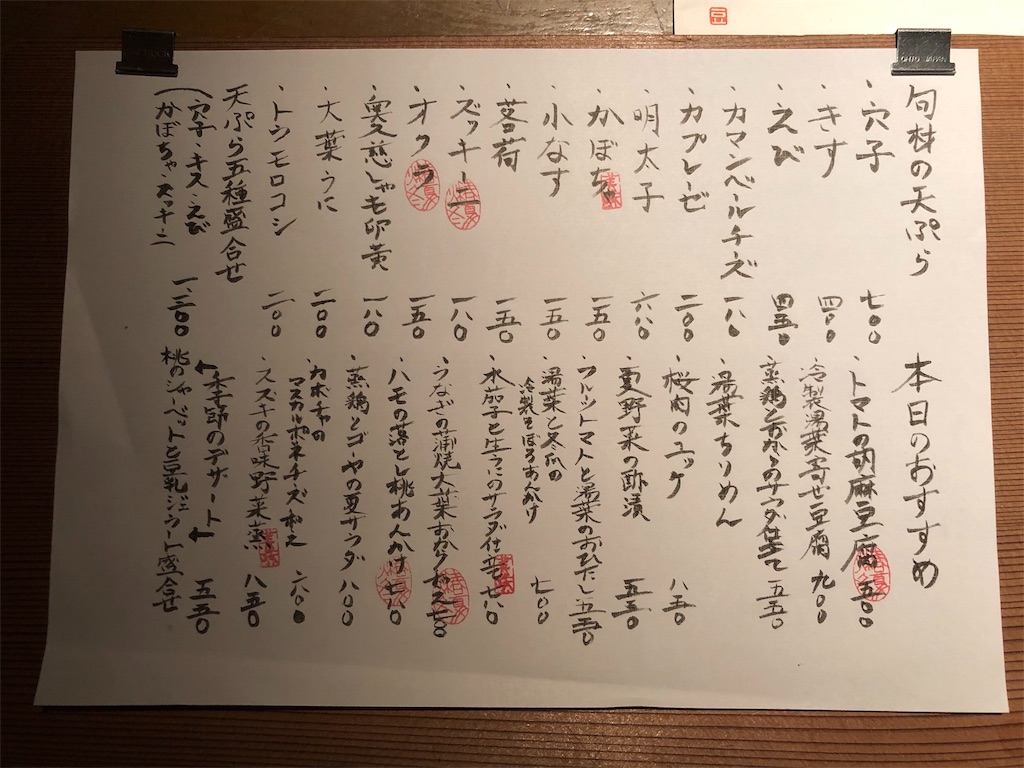 旬材の天ぷら
・穴子 七〇〇
・きす 四〇〇
・えび 四五〇
・カマンベールチーズ 一八〇
・カプレーゼ 二〇〇
・明太子 六八〇
・かぼちゃ 一五〇
・小なす 一五〇
・茗荷 一五〇
・ズッキーニ 一八〇
・オクラ 一五〇
・奥久慈しゃも卵黄 一八〇
・大葉うに 二〇〇
・トウモロコシ 二〇〇
天ぷら五種盛合せ 一、三〇〇
(穴子・キス・えび
かぼちゃ・ズッキーニ)
本日のおすすめ
・トマトの胡麻豆腐 五五〇
・冷製湯葉寄せ豆腐 九〇〇
・蒸鶏とおからのサラダ仕立て 五五〇
・湯葉ちりめん
・桜肉のユッケ 八五〇
・夏野菜の酢漬 五五〇
・フルーツトマトと湯葉のおひたし 五五〇
・湯葉と冬瓜の
冷製そぼろあんかけ 七〇〇
・水茄子と生うにのサラダ仕立 七八〇
・うなぎの蒲焼大葉おから
・ハモの落とし桃あんかけ 七八〇
・蒸鶏とゴーヤの夏サラダ 八〇〇
・カボチャの
マスカルポネチーズ和え 六八〇
・スズキの香味野菜蒸 八五〇
季節のデザート
桃のシャーベットと豆乳ジェラート盛合せ 五五〇
豆
OHTO JAPAN